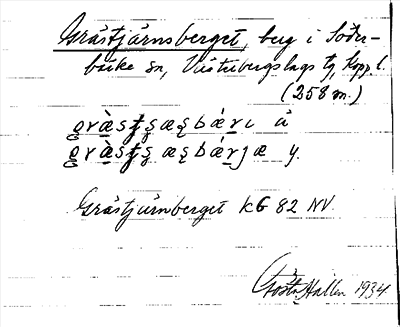 Grästjärnsberget, berg i Söder-
bärke sn, Västerbergslags tg, Kopp. l.
(258 m.)
gràstʂæʂbárɩ ä
gràstʂæʂbárjæ y.
Grästjärnberget KG 82 NV.
Gösta Hallén 1934